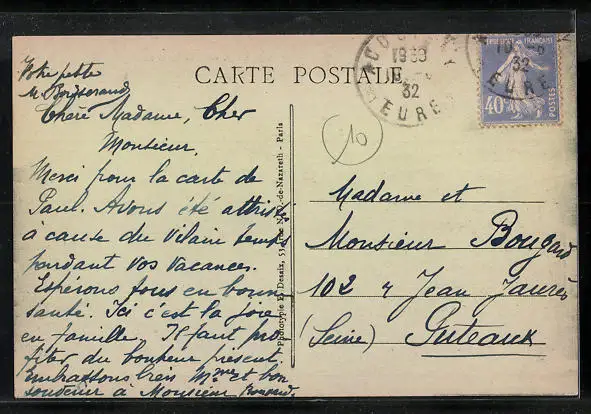 CARTE POSTALE
Votre petite
M.
Chère Madame, Cher
Monsieur,
Merci pour la carte de
Paul. Avons été attristés
a cause du vilain temps
pendant vos vacances.
Espérons tous en bonne
santé. Ici c'est la joie
en famille. Il faut pro
fiter du bonheur présent.
Embrassons bien Mme et bon
souvenir à Monsieur
Phototypie E. Desaix, N.-D.-de-Nazareth - Paris
1930
32
EURE
32
EURE
FRANÇAISE
40c
POSTES
10
Madame et
Monsieur Bougard
102 r Jean Jaurès
(Seine) Puteaux